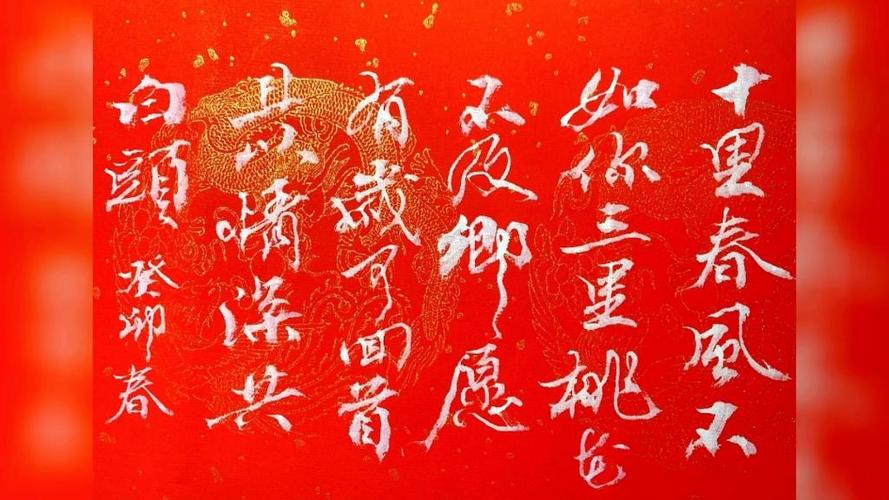 十里春風不
如你三里桃花
不及卿愿
有歲可回首
且以情深共
白頭
癸卯春